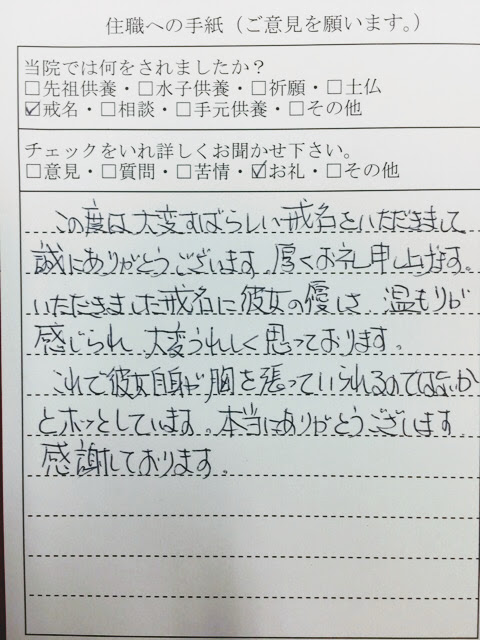 住職への手紙（ご意見を願います。）
当院では何をされましたか？
□先祖供養・□水子供養・□祈願・□土仏
☑戒名・□相談・□手元供養・□その他
チェックをいれ詳しくお聞かせ下さい。
□意見・□質問・□苦情・☑お礼・□その他
この度は大変すばらしい戒名をいただきまして
誠にありがとうございます。厚くお礼申し上げます。
いただきました戒名に彼女の優しさ 温もりが
感じられ 大変うれしく思っております。
これで彼女自身が胸を張っていられるのではないか
とホッとしています。本当にありがとうございます
感謝しております。